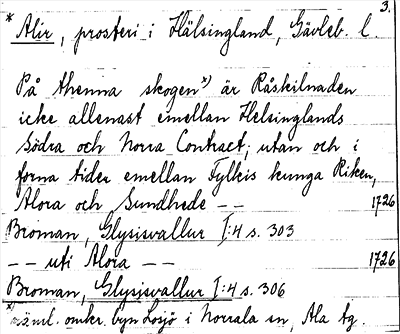 3.
* Alir, prosteri i Hälsingland, Gävleb. l.
På thenna skogen *) är Råskilnaden
icke allenast emellan Helsinglands
södra och norra Contract, utan och i
forna tider emellan Fylkis kunga Riken,
Alora och Sundhede -- 1726
Broman, Glysisvallur I:4 s. 303
-- uti Alora -- 1726
Broman, Glysisvallur I:4 s. 306
*) näml. omkr. byn Losjö i Norrala sn, Ala tg.